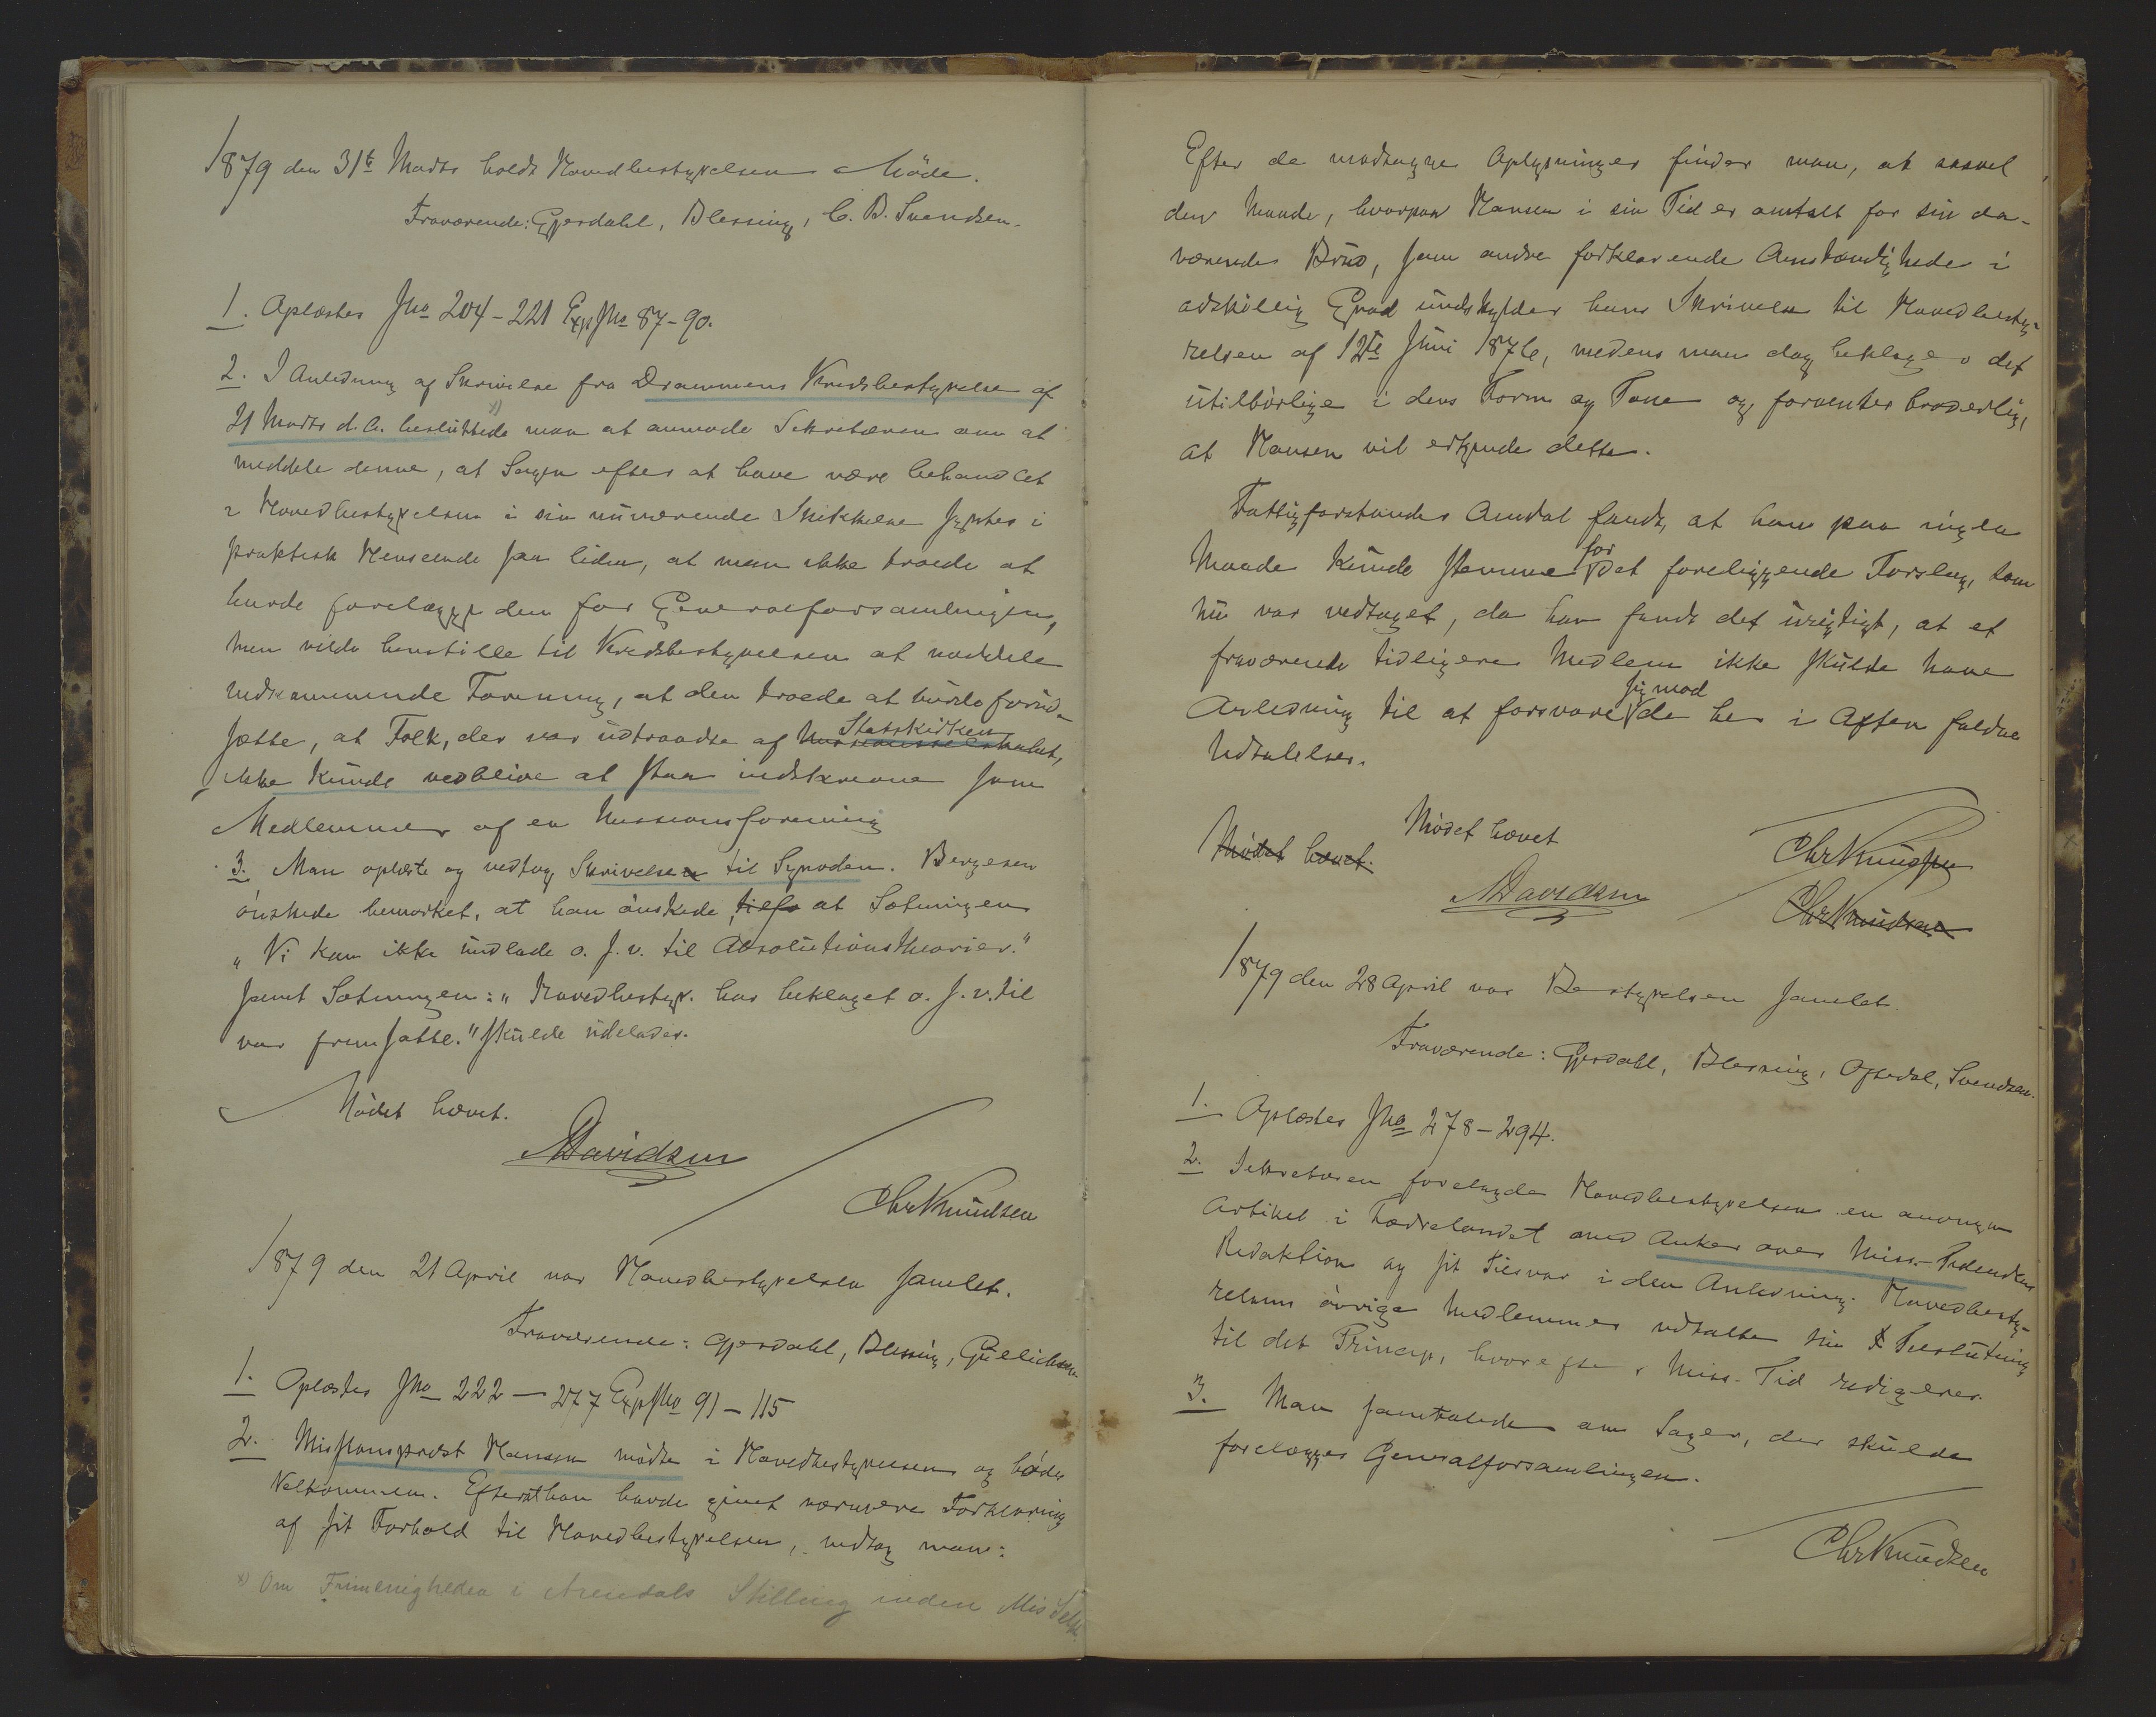 1879 den 31te Marts holdt Hovedbestyrelsen Möde.
Fraværende: Gjerdahl, Blessing, C. B. Svendsen.
1. Oplæstes Jno 204-221 ExpJno 87-90.
2. I Anledning af Skrivelse fra Drammens Kredsbestyrelse af
21 Marts d. A. besluttede x) man at anmode Sekretæren om at
meddele denne, at Sagen efter at have være behandlet
i Hovedbestyrelsen i sin nuværende Skikkelse syntes i
praktisk Henseende saa liden, at man ikke troede at
burde forelægge den for Generalforsamlingen,
men vilde henstille til Kredsbestyrelsen at meddele
vedkommende Forening, at den troede at burde forud-
sætte, at Folk, der var udtraadte af Missionsselskabet, Statskirken
ikke kunde vedblive at staa indskrevne som
Medlemmer af en Missionsforening
3. Man oplæste og vedtog Skrivelsen til Synoden. Bergesen
önskede bemærket, at han önskede, at Sætningen
„Vi kan ikke undlade o. s. v. til Absolutionstheorier."
samt Sætningen: „Hovedbestyr. har beklaget o. s. v. til
var fremsatte." skulde udelades.
Mödet hævet.
ADavidsen
ChrKnudsen
1879 den 21 April var Hovedbestyrelsen samlet.
Fraværende: Gjerdahl, Blessing, Gullichsen
1. Oplæstes Jno 222 - 277 ExpJno 91-115
2. Missionsprest Hansen mödte i Hovedbestyrelsen og bödes
Velkommen. Efterat han havde givet nærmere Forklaring
af sit Forhold til Hovedbestyrelsen, vedtog man:
x) Om Frimenigheden i Arendals Stilling inden Mis Selsk.
Efter de modtagne Oplysninger finder man, at saavel
den Maade, hvorpaa Hansen i sin Tid er omtalt for sin da-
værende Brud, som andre forklarende Omstændigheder i
adskillig Grad undskylder hans Skrivelse til Hovedbesty-
relsen af 12te Juni 1876, medens man dog beklager det
utilbörlige i dens Form og Tone og forventer broderlig,
at Hansen vil erkjende dette.
Fattigforstander Omdal fandt, at han paa ingen
Maade kunde stemme for det foreliggende Forslag, som
nu var vedtaget, da han fandt det urigtigt, at et
fraværende tidligere Medlem ikke skulde have
Anledning til at forsvare sig mod de her i Aften faldne
Udtalelser.
Mödet hævet
Mödet hævet.
ChrKnudsen
ADavidsen
ChrKnudsen
1879 den 28 April var Bestyrelsen samlet.
Fraværende: Gjerdahl, Blessing, Opsedal, Svendsen.
1. Oplæstes Jno 278-294.
2. Sekretæren forelagde Hovedbestyrelsen en anonym
Artikel i Fædrelandet med Anker over Miss.-Tidendens
Redaktion og sit Tilsvar i den Anledning. Hovedbesty-
relsens övrige Medlemmer udtalte sin Tilslutning
til det Princip, hvorefter Miss. Tid redigeres.
3. Man samtalede om Sager, der skulde
forelægges Generalforsamlingen.
ChrKnudsen